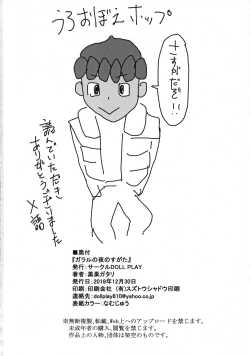 うろおぼえホップ
さすがだぞ!!
読んでいただき
ありがとうございました
■奥付
『ガラルの夜のすがた』
発行: サークルDOLL PLAY
発行日: 2019年12月30日
印刷: 印刷会社 (有)スズトウシャドウ印刷
連絡先: dollplay810@yahoo.co.jp
表紙カラー: なむじゅう
※無断複製、転載、Web上へのアップロードを禁じます。
未成年者の購入、閲覧を禁じます。
作品上の人物、団体は架空のものです。